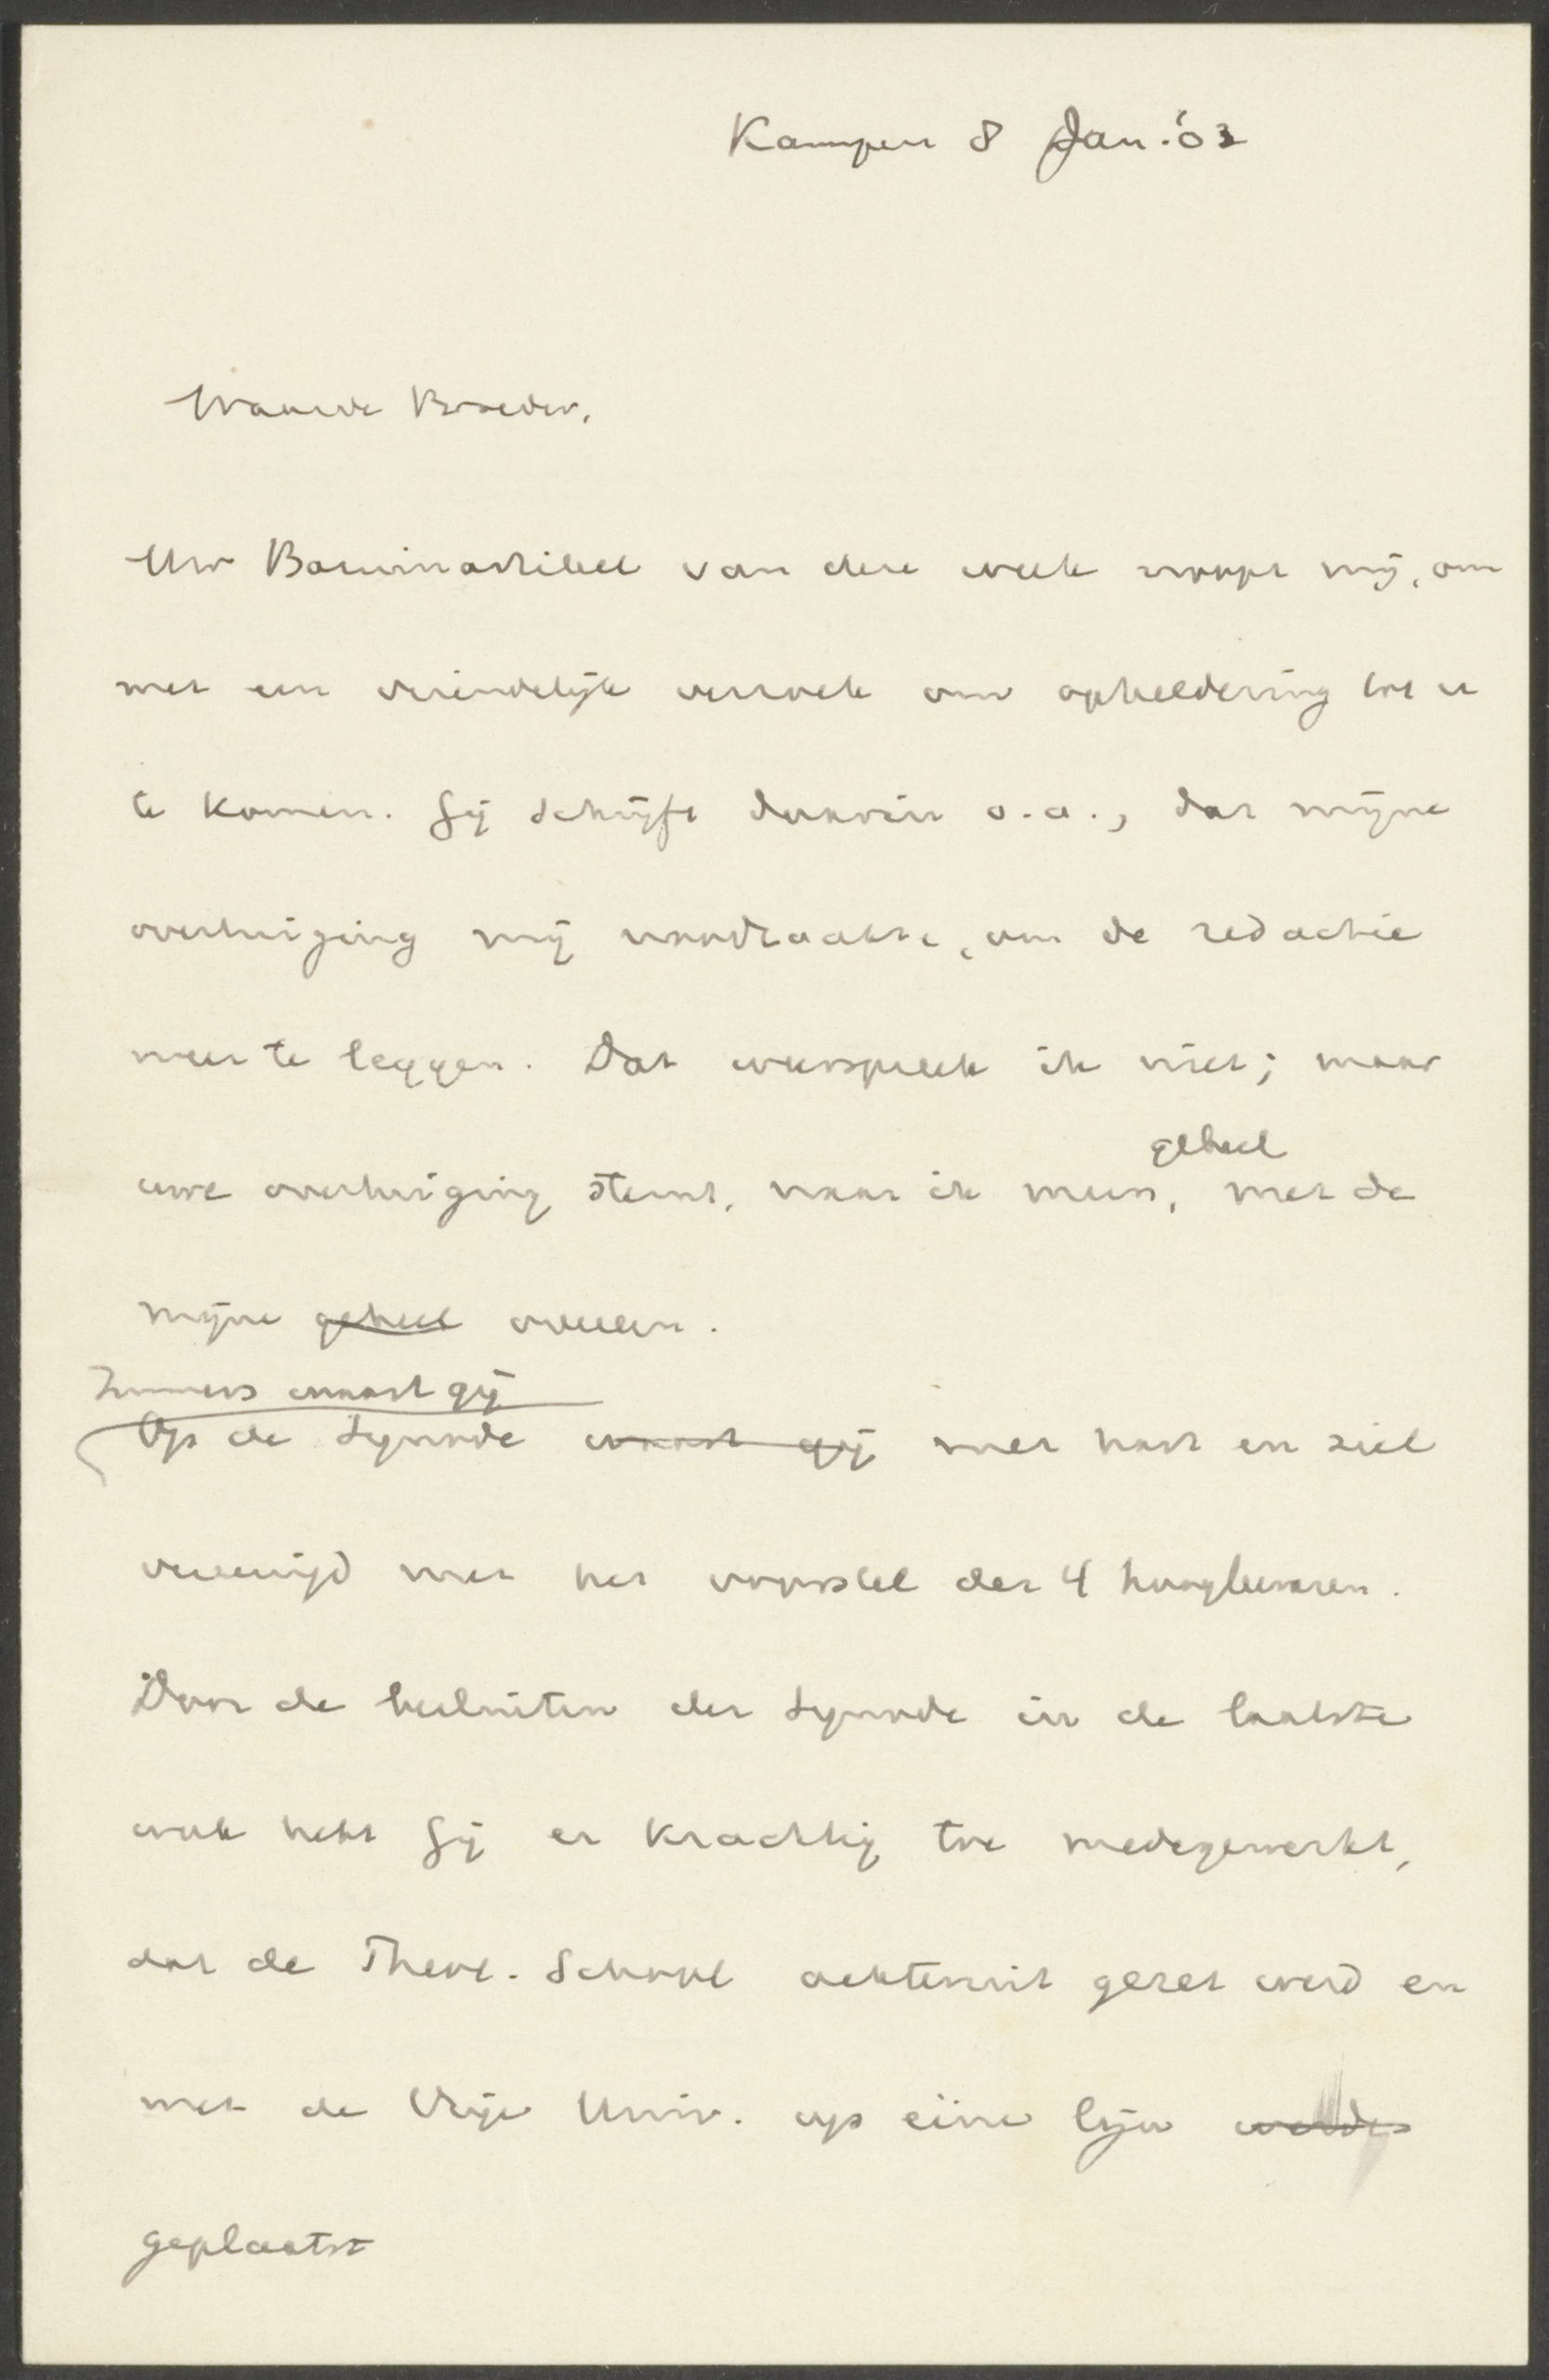 Kampen 8 Jan. '03
Waarde Broeder,
Uw Bazuinartikel van deze week noopt mij, om
met een vriendelijk verzoek om opheldering tot u
te komen. Gij schrijft daarin o.a., dat mijne
overtuiging mij noodzaakte, om de redactie
neer te leggen. Dat weerspreek ik niet; maar
geheel
uwe overtuiging stemt, naar ik meen, met de
mijne geheel overeen.
Immers waart gij
Op de Synode waart gij met hart en ziel
vereenigd met het voorstel der 4 hoogleeraren.
Door de besluiten der Synode in de laatste
week hebt Gij er krachtig toe medegewerkt,
dat de Theol. School achteruit gezet werd en
met de Vrije Univ. op eéne lijn werd
geplaatst